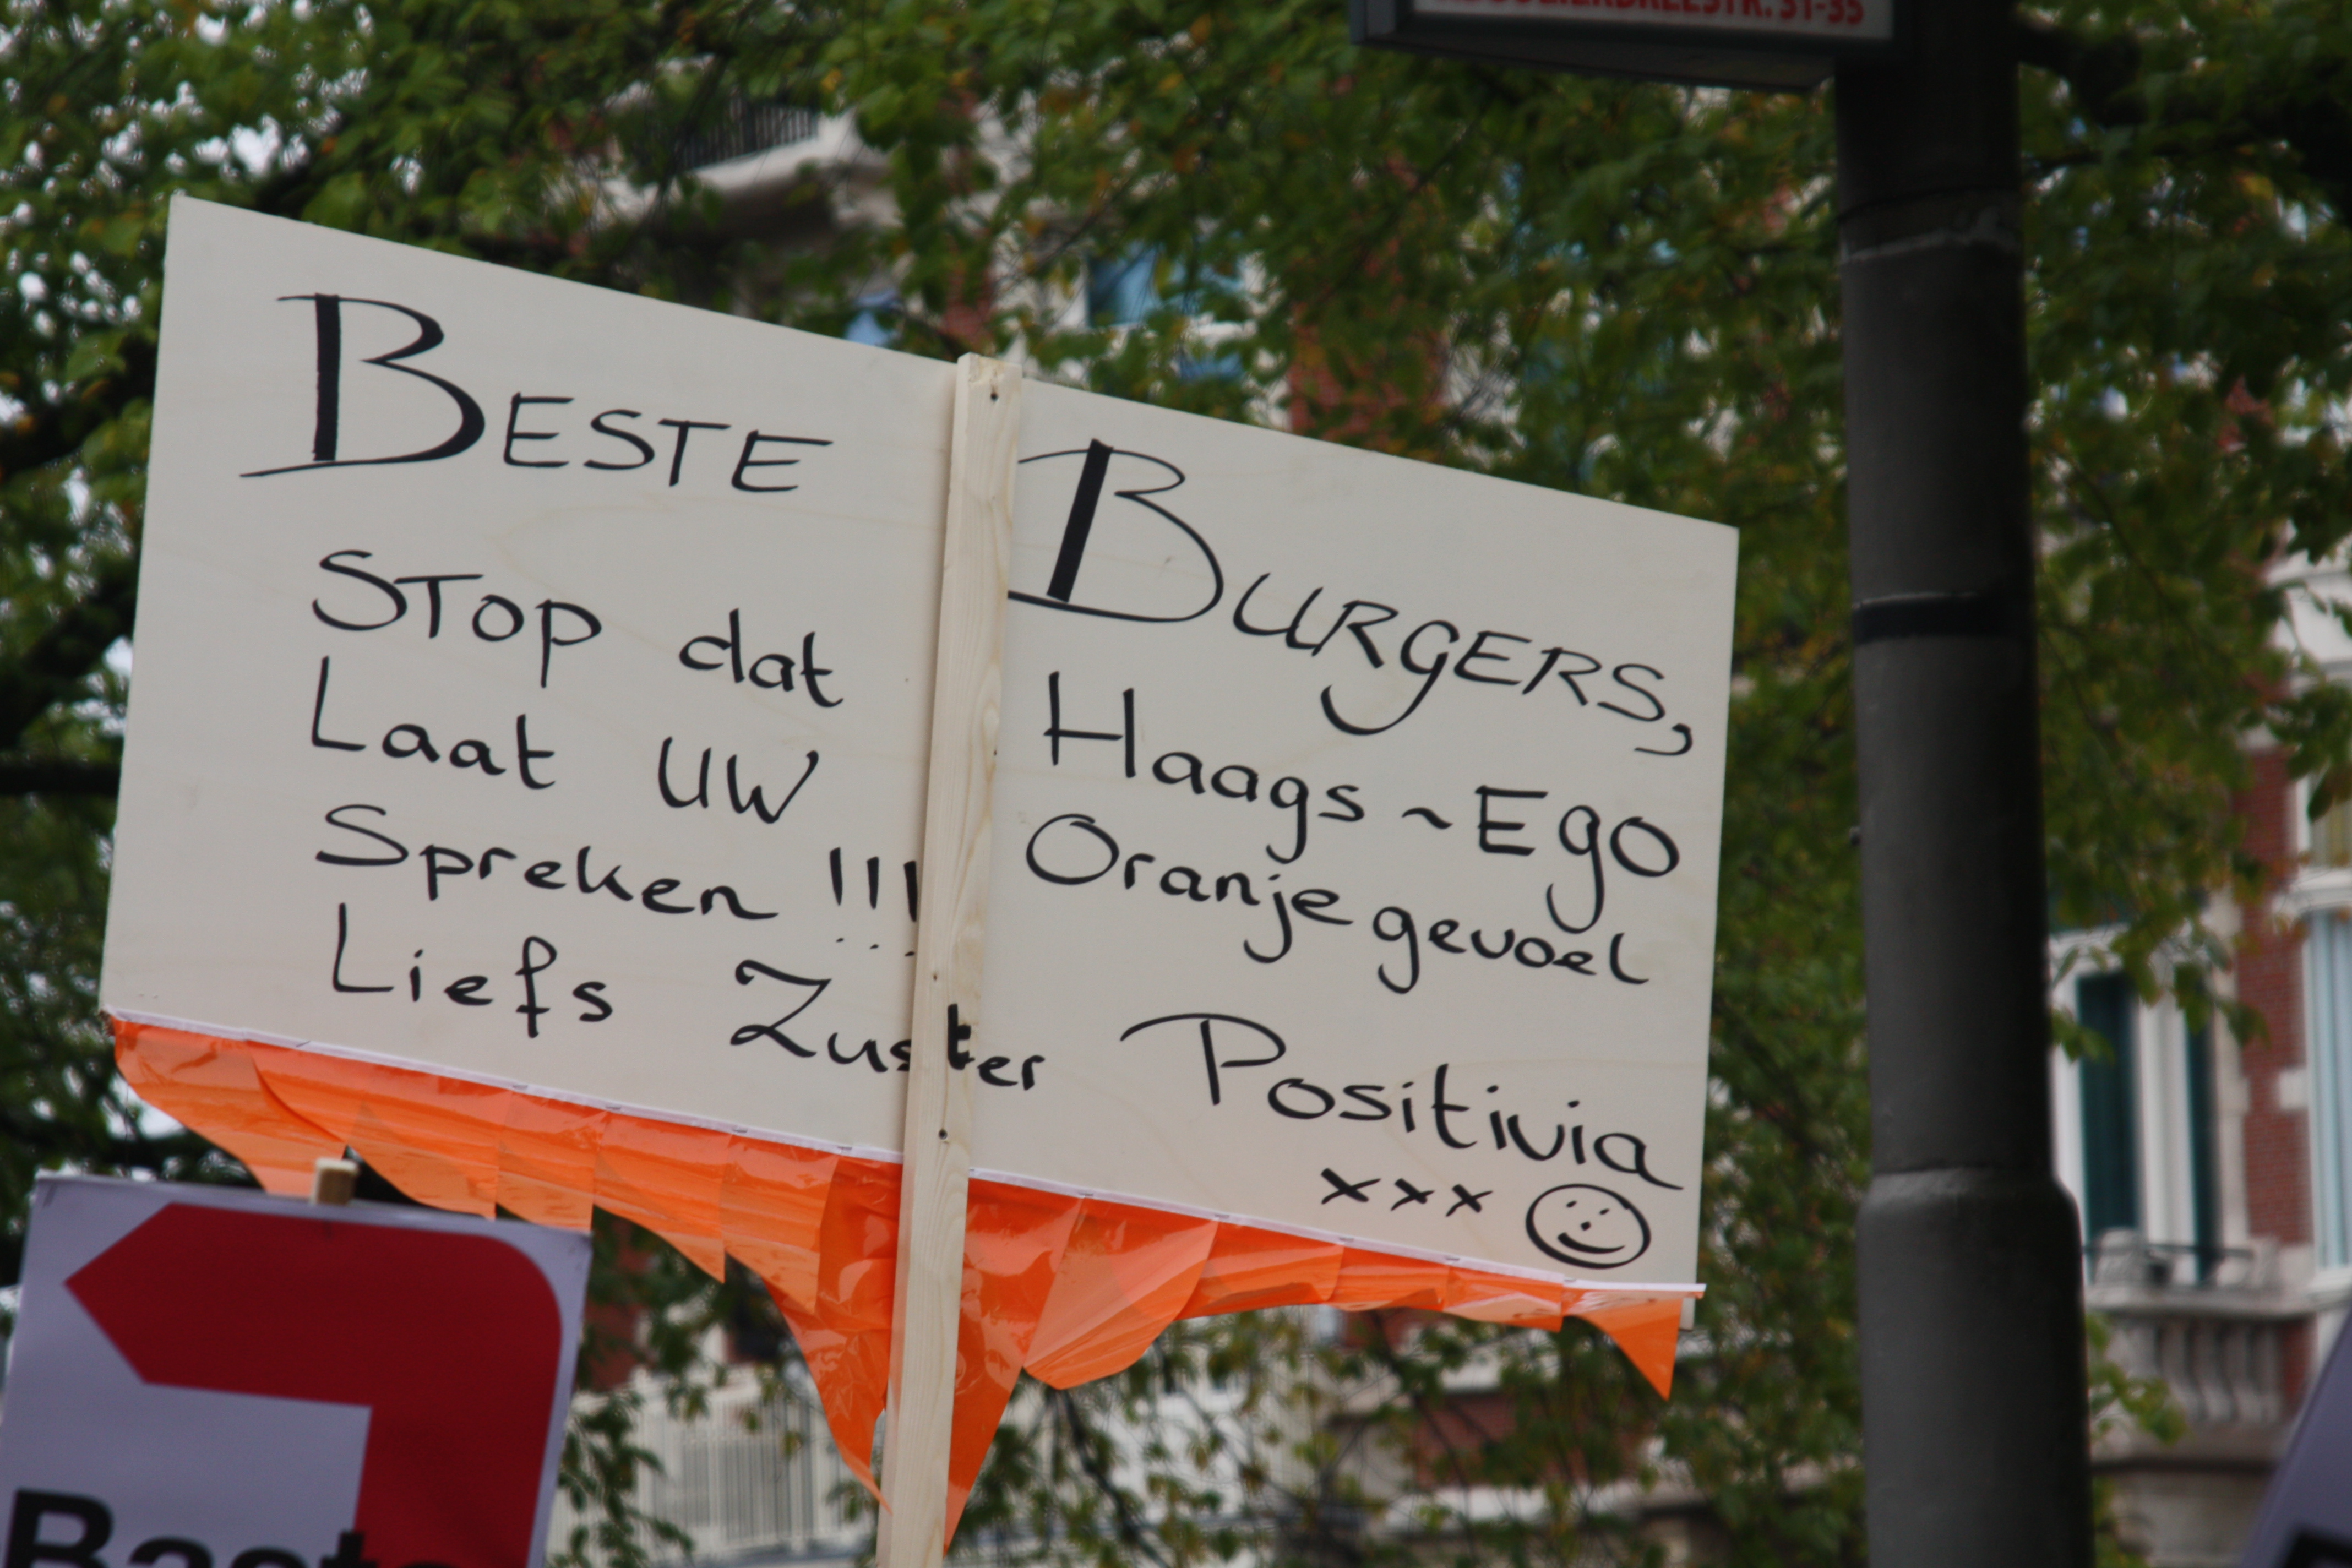 31-35
BESTE BURGERS,
STOP dat Haags ~ Ego
Laat UW Oranje gevoel
Spreken !!!
Liefs Zuster Positivia
xxx